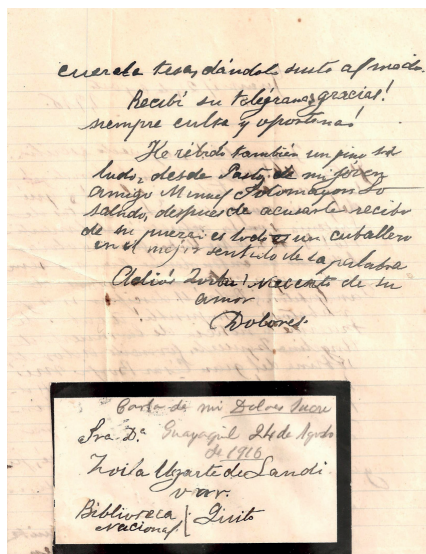 cuerda tesa, dándole susto al miedo.
Recibí su telégrama, gracias!
siempre culta y oportuna!
He recibido también un fino sa
ludo, desde Pasto, de mi joven
amigo Manuel Sotomayor. Lo
saludo, después de acusarle recibo
de su pieza: es todo un caballero
en el mejor sentido de la palabra
Adiós Zoila! Necesito de su
amor
Dolores.
Carta de mi Dolores Sucre
Sra. Dª Guayaquil 24 de Agosto
de 1916
Zoila Ugarte de Landi
var.
Biblioteca
Nacional. Quito